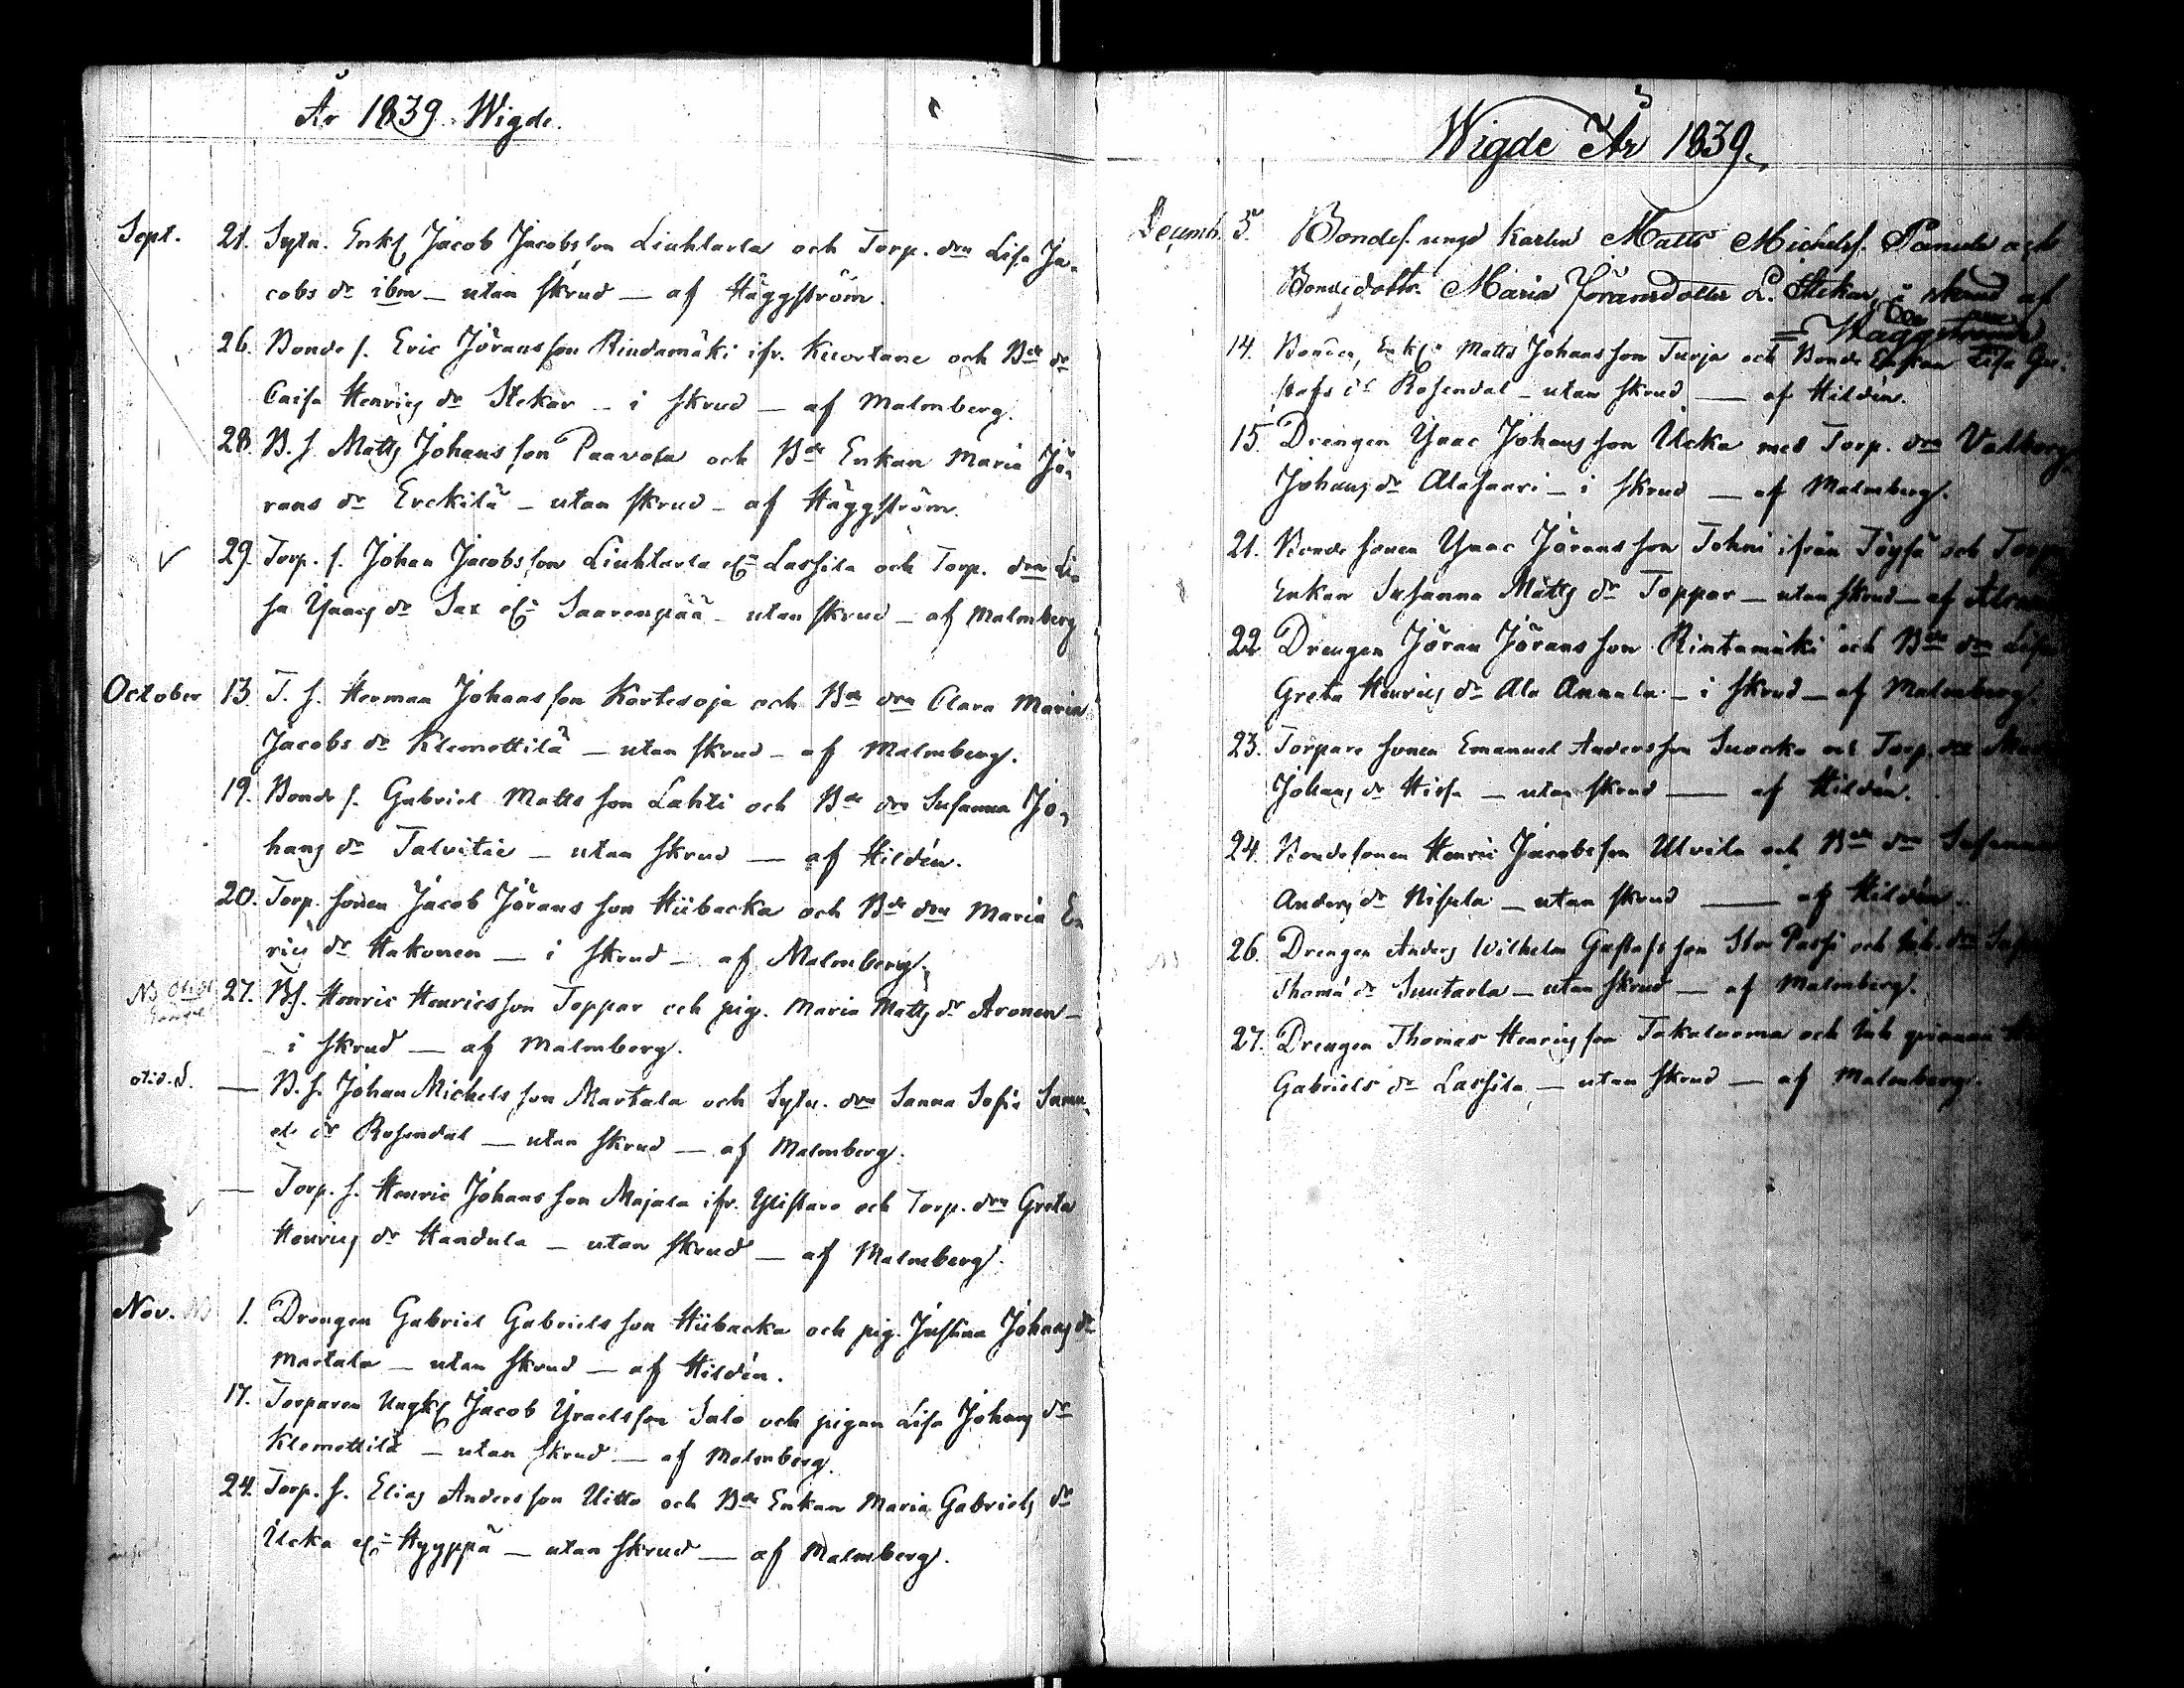 År 1839. Wigde.
Sept. 21. Sytn. Enkl Jacob Jacobsson Liuhtarla och Torp. drn Lisa Ja-
cobs dr ibm — utan skrud — af Häggström.
26. Bonde s. Eric Jöransson Rindamäki ifr. Kuortane och Bde dr
Caisa Henrics dr Stekar — i skrud — af Malmberg.
28. B. s. Matts Johansson Paavola och Bde Enkan Maria Jö-
rans dr Erckilä — utan skrud — af Häggström.
29. Torp. s. Johan Jacobsson Liuhtarla ell. Lassila och Torp. drn Li-
sa Ysacs dr Sax ell. Saarenpää — utan skrud — af Malmberg
October 13. T. s. Herman Johansson Kortesoja och Bde drn Clara Maria
Jacobs dr Klemettilä — utan skrud — af Malmberg.
19. Bonde s. Gabriel Mattsson Lahti och Bde drn Susanna Jo-
hans dr Talvitie — utan skrud — af Hildén.
20. Torp. sonen Jacob Jöransson Hiibacka och Bde drn Maria E-
rics dr Hakonen — i skrud — af Malmberg.
NB 27. Bs. Henric Henricsson Toppar och pig. Maria Matts dr Aronen —
— i skrud — af Malmberg.
— B. s. Johan Michelsson Martala och Sytn. drn Sanna Sofia Samu-
els dr Rosendal — utan skrud — af Malmberg.
— Torp. s. Henric Johansson Majala ifr. Ylistaro och Torp. drn Greta
Henrics dr Haudula — utan skrud — af Malmberg.
Nov. 1. Drengen Gabriel Gabrielsson Hiibacka och pig. Justina Johans dr
Martala — utan skrud — af Hildén.
17. Torparen Ungkl Jacob Ysraelsson Salo och pigan Lisa Johans dr
Klemettilä — utan skrud — af Malmberg.
24. Torp. s. Elias Andersson Uitto och Bde Enkan Maria Gabriels dr
Ucka ell. Hyyppä — utan skrud — af Malmberg.
Wigde År 1839.
Decemb. 5. Bondes. ungd karlen Matts Michelss. Panula och
Bondedottr. Maria Jöransdotter L. Stekar, i skrud af
= Häggström
14. Bonden, Enkl. Matts Johansson Turja och Bonde Enkan Lisa Gu-
stafs dr Rosendal — utan skrud — af Hildén.
15. Drengen Ysac Johansson Ucka med Torp. drn Valborg
Johans dr Alasaari — i skrud — af Malmberg.
21. Bonde sonen Ysac Jöransson Tohni ifrån Töysä och Torp
Enkan Susanna Matts dr Toppar — utan skrud — af
22. Drengen Jöran Jöransson Rintamäki och Bde drn Lisa
Greta Henrics dr Ala Annala — i skrud — af Malmberg.
23. Torpare sonen Emanuel Andersson Suocka och Torp. drn
Johans dr Hissa — utan skrud — af Hildén.
24. Bondesonen Henric Jacobsson Ulvila och Bde drn Susanna
Anders dr Nisula — utan skrud — af Hildén.
26. Drengen Anders Wilhelm Gustafsson Stor Passi och Inh. drn
Thomæ dr Luutarla — utan skrud — af Malmberg.
27. Drengen Thomas Henricsson Takaluoma och Inh qvinnan
Gabriels dr Lassila — utan skrud — af Malmberg.